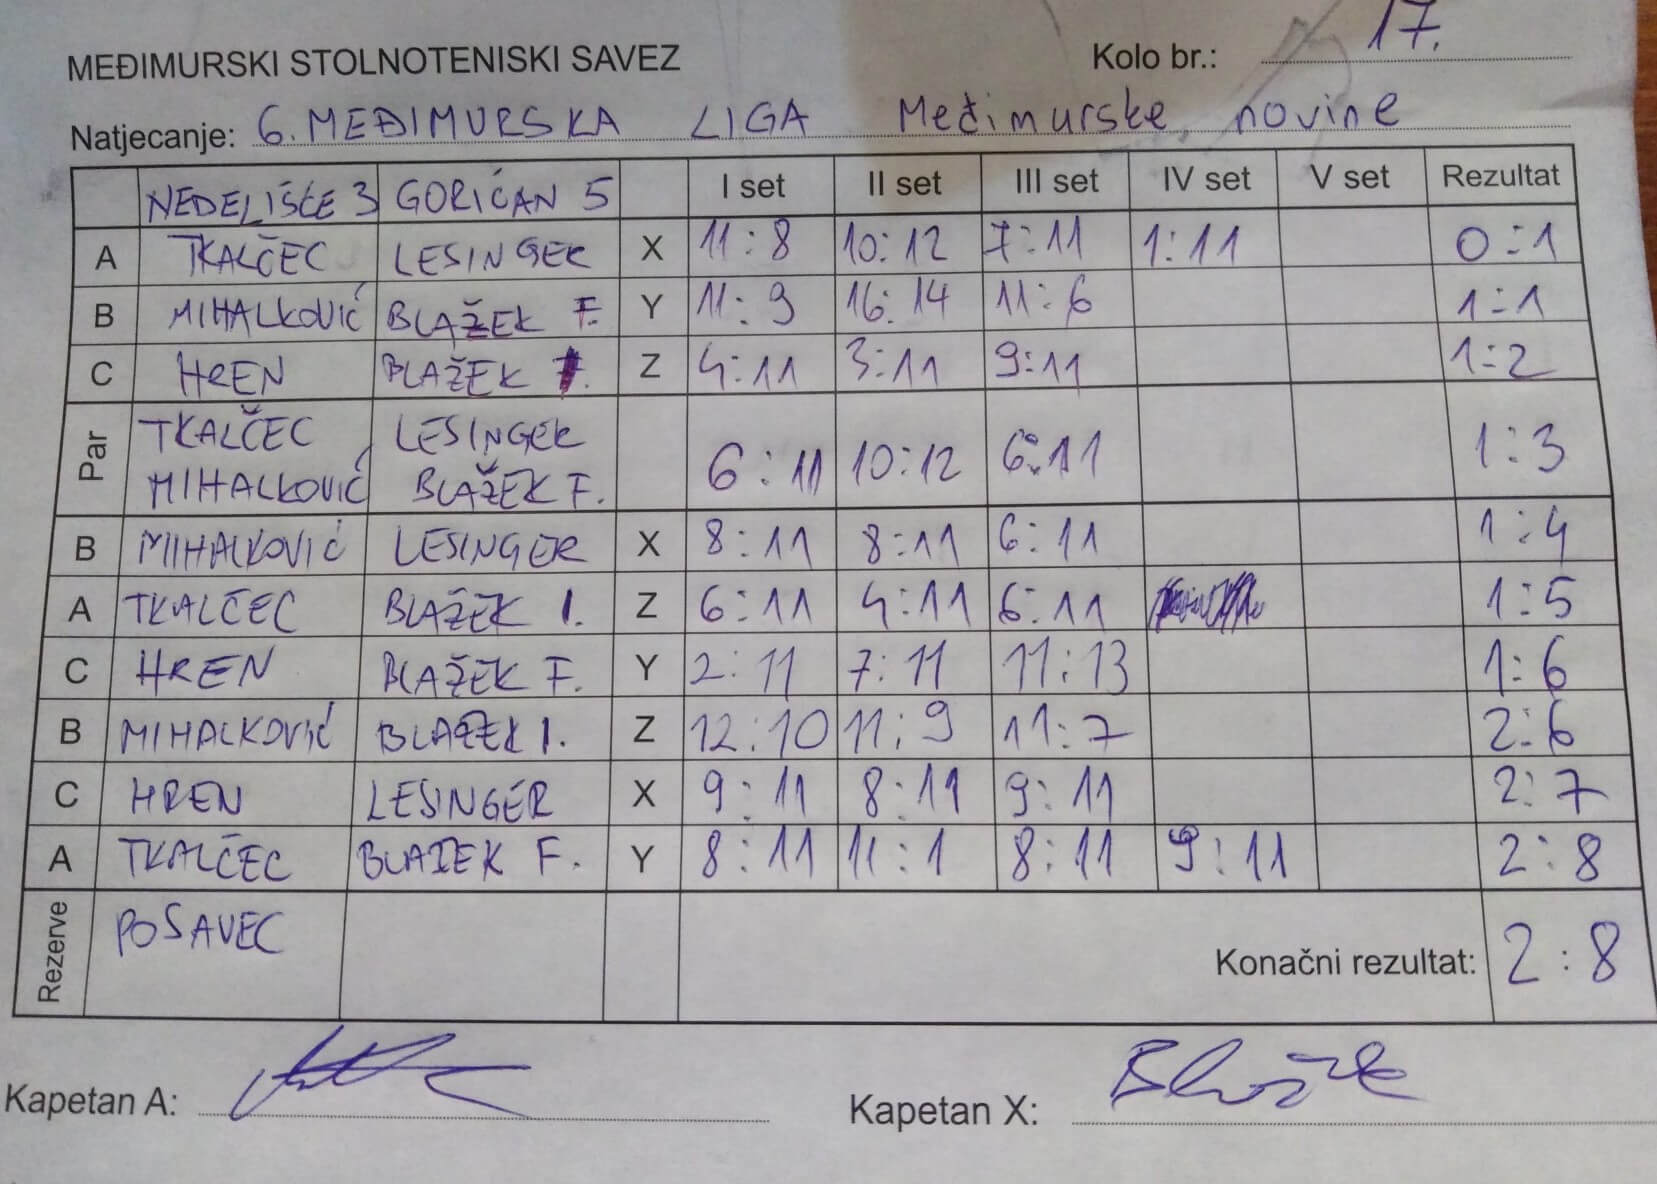 MEĐIMURSKI STOLNOTENISKI SAVEZ Kolo br.: 17.
Natjecanje: 6. MEĐIMURSKA LIGA Međimurske novine
NEDELIŠĆE 3 GORIČAN 5 I set II set III set IV set V set Rezultat
A TKALČEC LESINGER X 11:8 10:12 7:11 1:11 0:1
B MIHALKOVIĆ BLAŽEK F. Y 11:9 16:14 11:6 1:1
C HREN BLAŽEK Z 4:11 3:11 9:11 1:2
Par TKALČEC LESINGER
MIHALKOVIĆ BLAŽEK F. 6:11 10:12 6:11 1:3
B MIHALKOVIĆ LESINGER X 8:11 8:11 6:11 1:4
A TKALČEC BLAŽEK I. Z 6:11 4:11 6:11 1:5
C HREN BLAŽEK F. Y 2:11 7:11 11:13 1:6
B MIHALKOVIĆ BLAŽEK I. Z 12:10 11:9 11:7 2:6
C HREN LESINGER X 9:11 8:11 9:11 2:7
A TKALČEC BLAŽEK F. Y 8:11 11:1 8:11 9:11 2:8
Rezerve POSAVEC Konačni rezultat: 2:8
Kapetan A: Kapetan X: Blažek